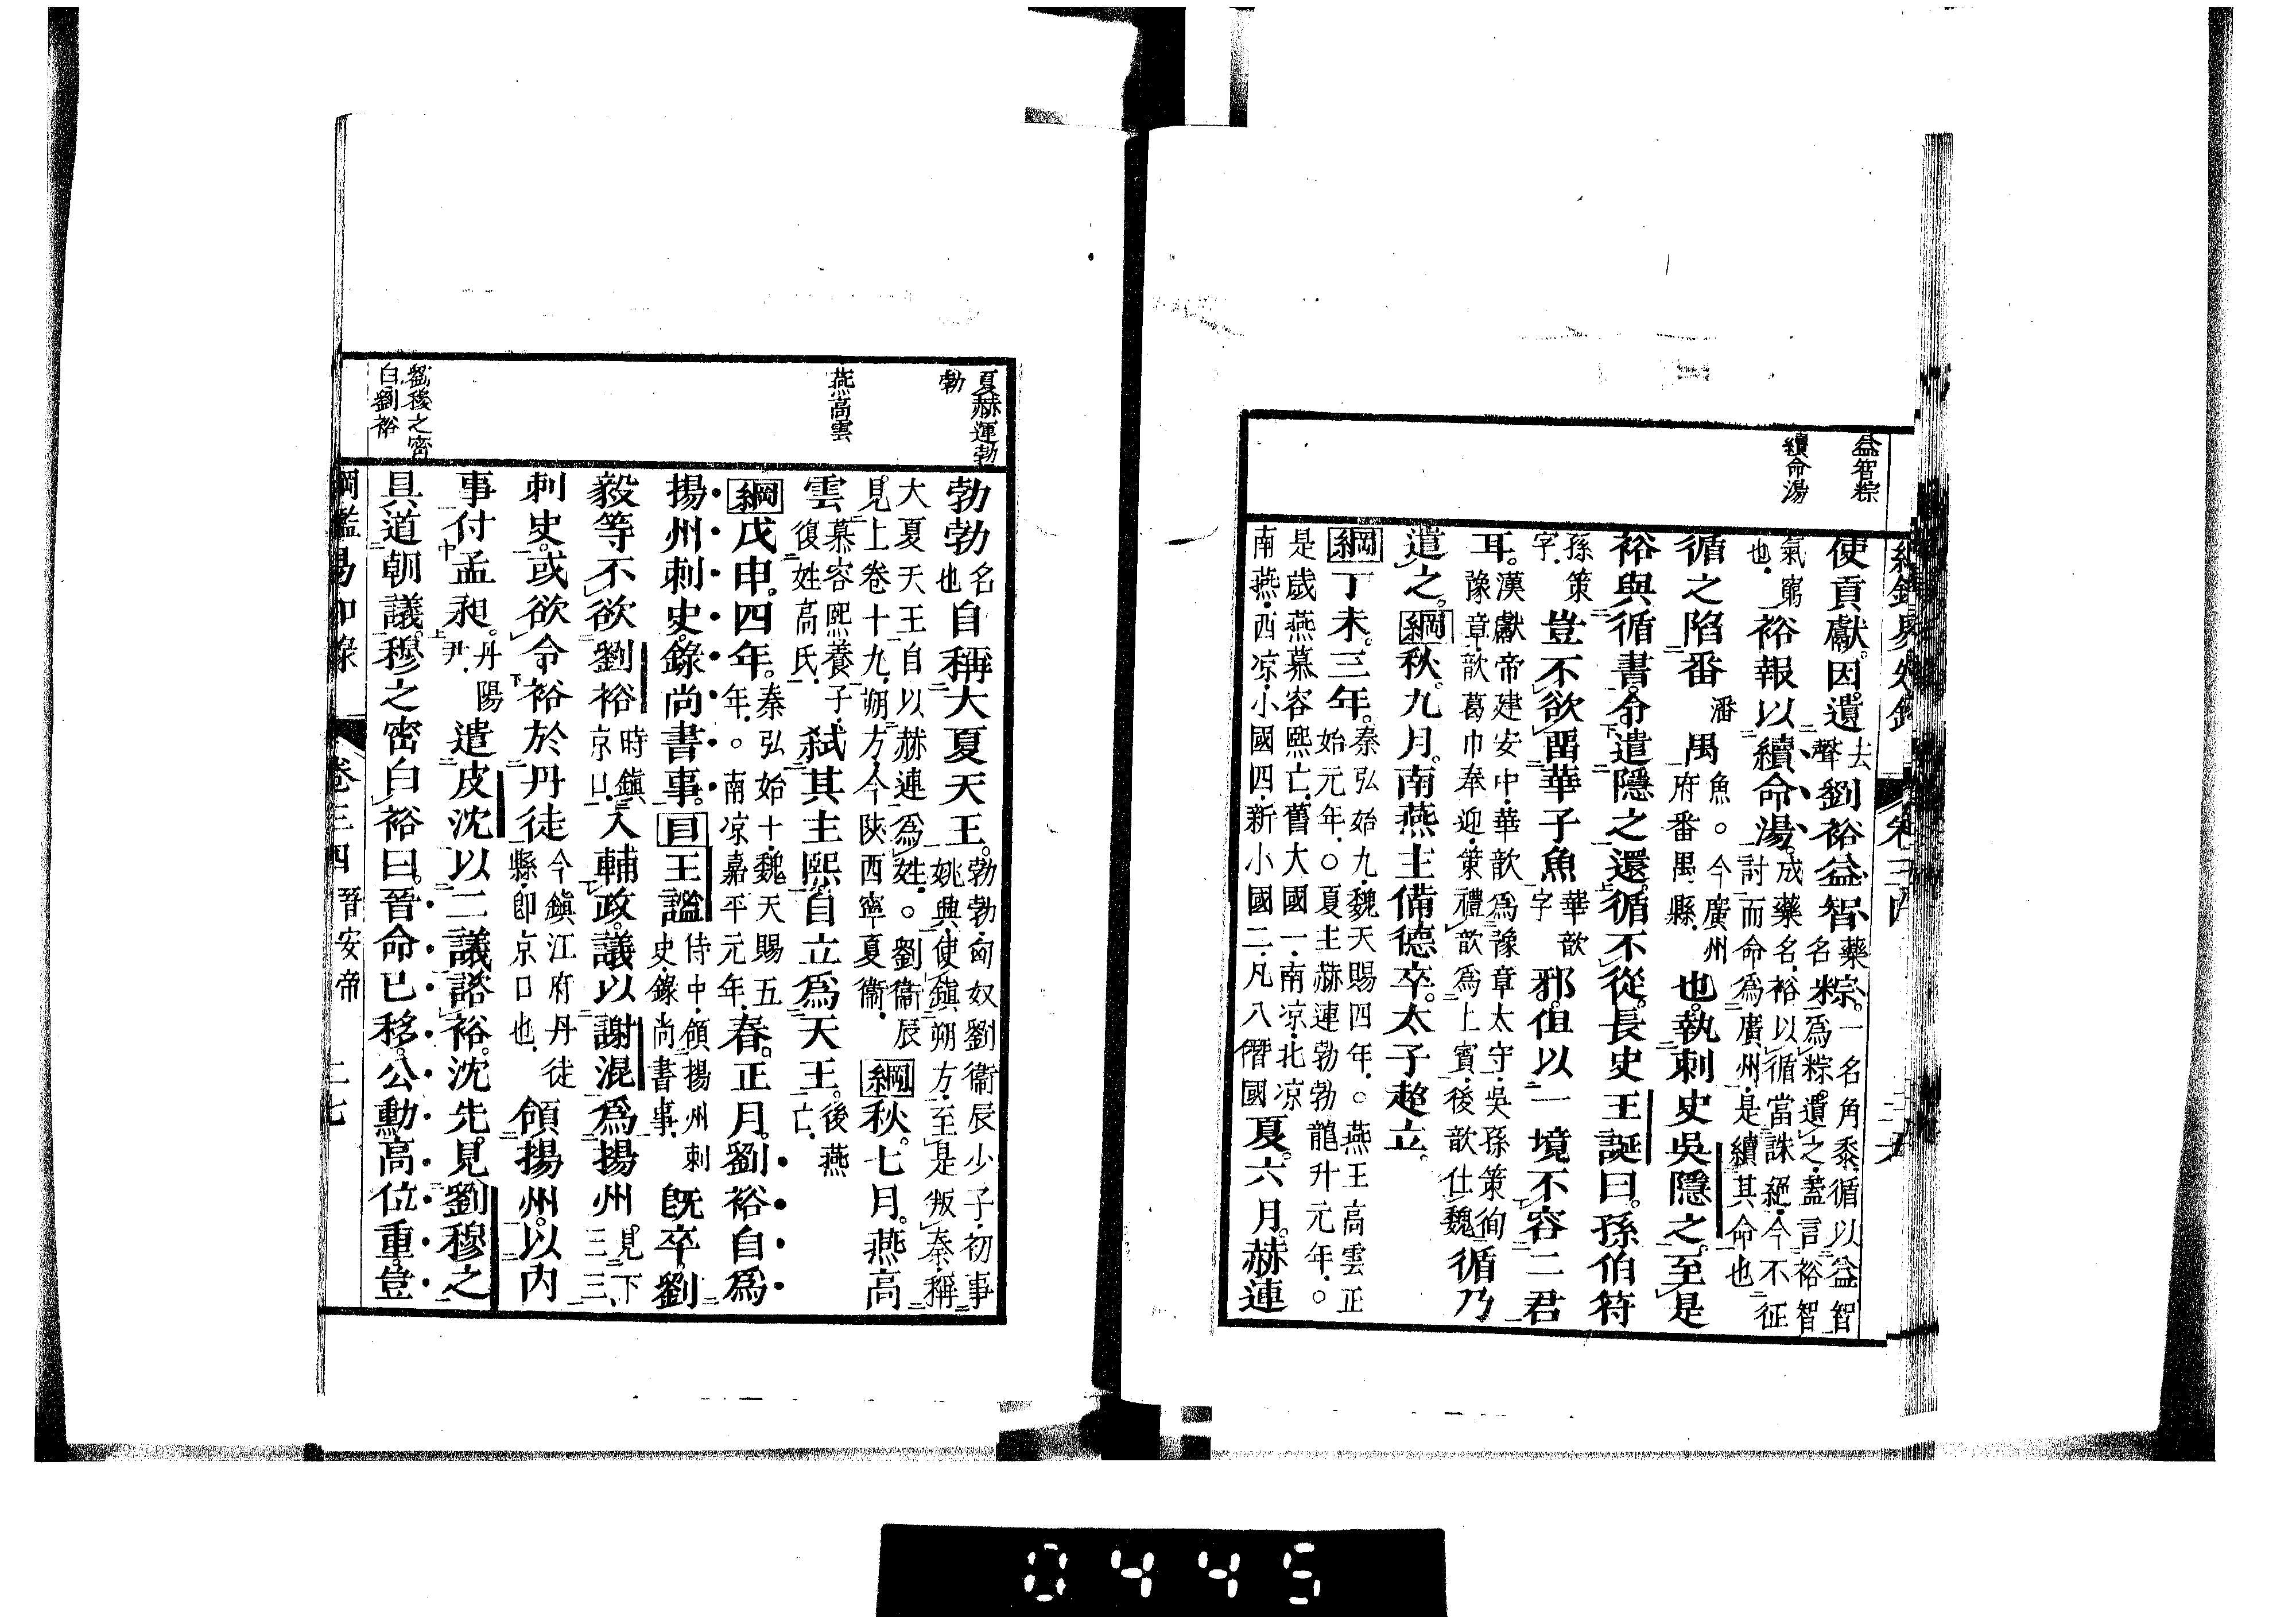 益智粽
續命湯
使貢獻。因遺去聲劉裕益智藥名粽。一名角黍。循以益智
米爲粽。遺之。蓋言裕智
氣窮也。裕報以續命湯。成藥名。裕以循當誅絕。今不征
討而命爲廣州。是續其命也
循之陷番潘禺魚。○今廣州府番禺縣。也。執刺史吳隱之。至是
裕與循書。令遣隱之還。循不從。長史王誕曰。孫伯符
孫策字。豈不欲留華子魚華歆字邪。但以一境不容二君
耳。漢獻帝建安中。華歆爲豫章太守。吳孫策徇
豫章。歆葛巾奉迎。策禮歆爲上賓。後歆仕魏循乃
遣之。綱秋。九月。南燕主備德卒。太子超立。
綱丁未。三年。秦弘始九。魏天賜四年。○燕王高雲正
始元年。○夏主赫連勃勃龍升元年。○
是歲燕慕容熙亡。舊大國一。南凉。北凉
南燕。西凉。小國四。新小國二。凡八僭國夏。六月。赫連
夏赫連勃勃
燕高雲
劉穆之密白劉裕
勃勃名也自稱大夏天王。勃勃。匈奴劉衞辰少子。初事
姚興。使鎭朔方。至是叛秦。稱
大夏天王。自以赫連爲姓。○劉衞辰
見上卷十九。朔方。今陝西寧夏衞。綱秋。七月。燕高
雲慕容熙養子。復姓高氏。弑其主熙。自立爲天王。後燕亡。
綱戊申。四年。秦弘始十。魏天賜五
年。○南凉嘉平元年。春。正月。劉裕自爲
揚州刺史。錄尚書事。目王謐侍中。領揚州刺史。錄尚書事。既卒。劉
毅等不欲劉裕時鎭京口。入輔政。議以謝混爲揚州見下三三
刺史。或欲令裕於丹徒今鎭江府丹徒縣。卽京口也。領揚州。以內
事付孟昶。丹陽尹。遣皮沈以二議諮裕。沈先見劉穆之
具道朝議。穆之密白裕曰。晉命已移。公勳高位重。豈
卷三四 晉安帝 二七